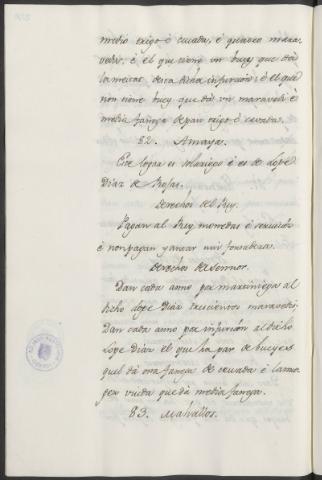 medio trigo è cevada, è quatro mara-
vedis, è el que tiene un buey que da
la meitat desta dicha infurcion: è el que
non tiene buey que dà un maravedi è
media fanega de pan trigo è cevada.
82. Amaya.
Este logar es solariego è es de Lope
Diaz de Rojas.
Derechos del Rey.
Pagan al Rey monedas è servicios
è non pagan yantar nin fonsadera.
Derechos del Sennor.
Dan cada anno por martiniega al
dicho Lope Diaz trescientos maravedis,
Dan cada anno por infurcion al dicho
Lope Diaz el que ha par de bueyes
quel dà una fanega de cevada è la mu-
ger viuda que dà media fanega.
83. Mahallos.